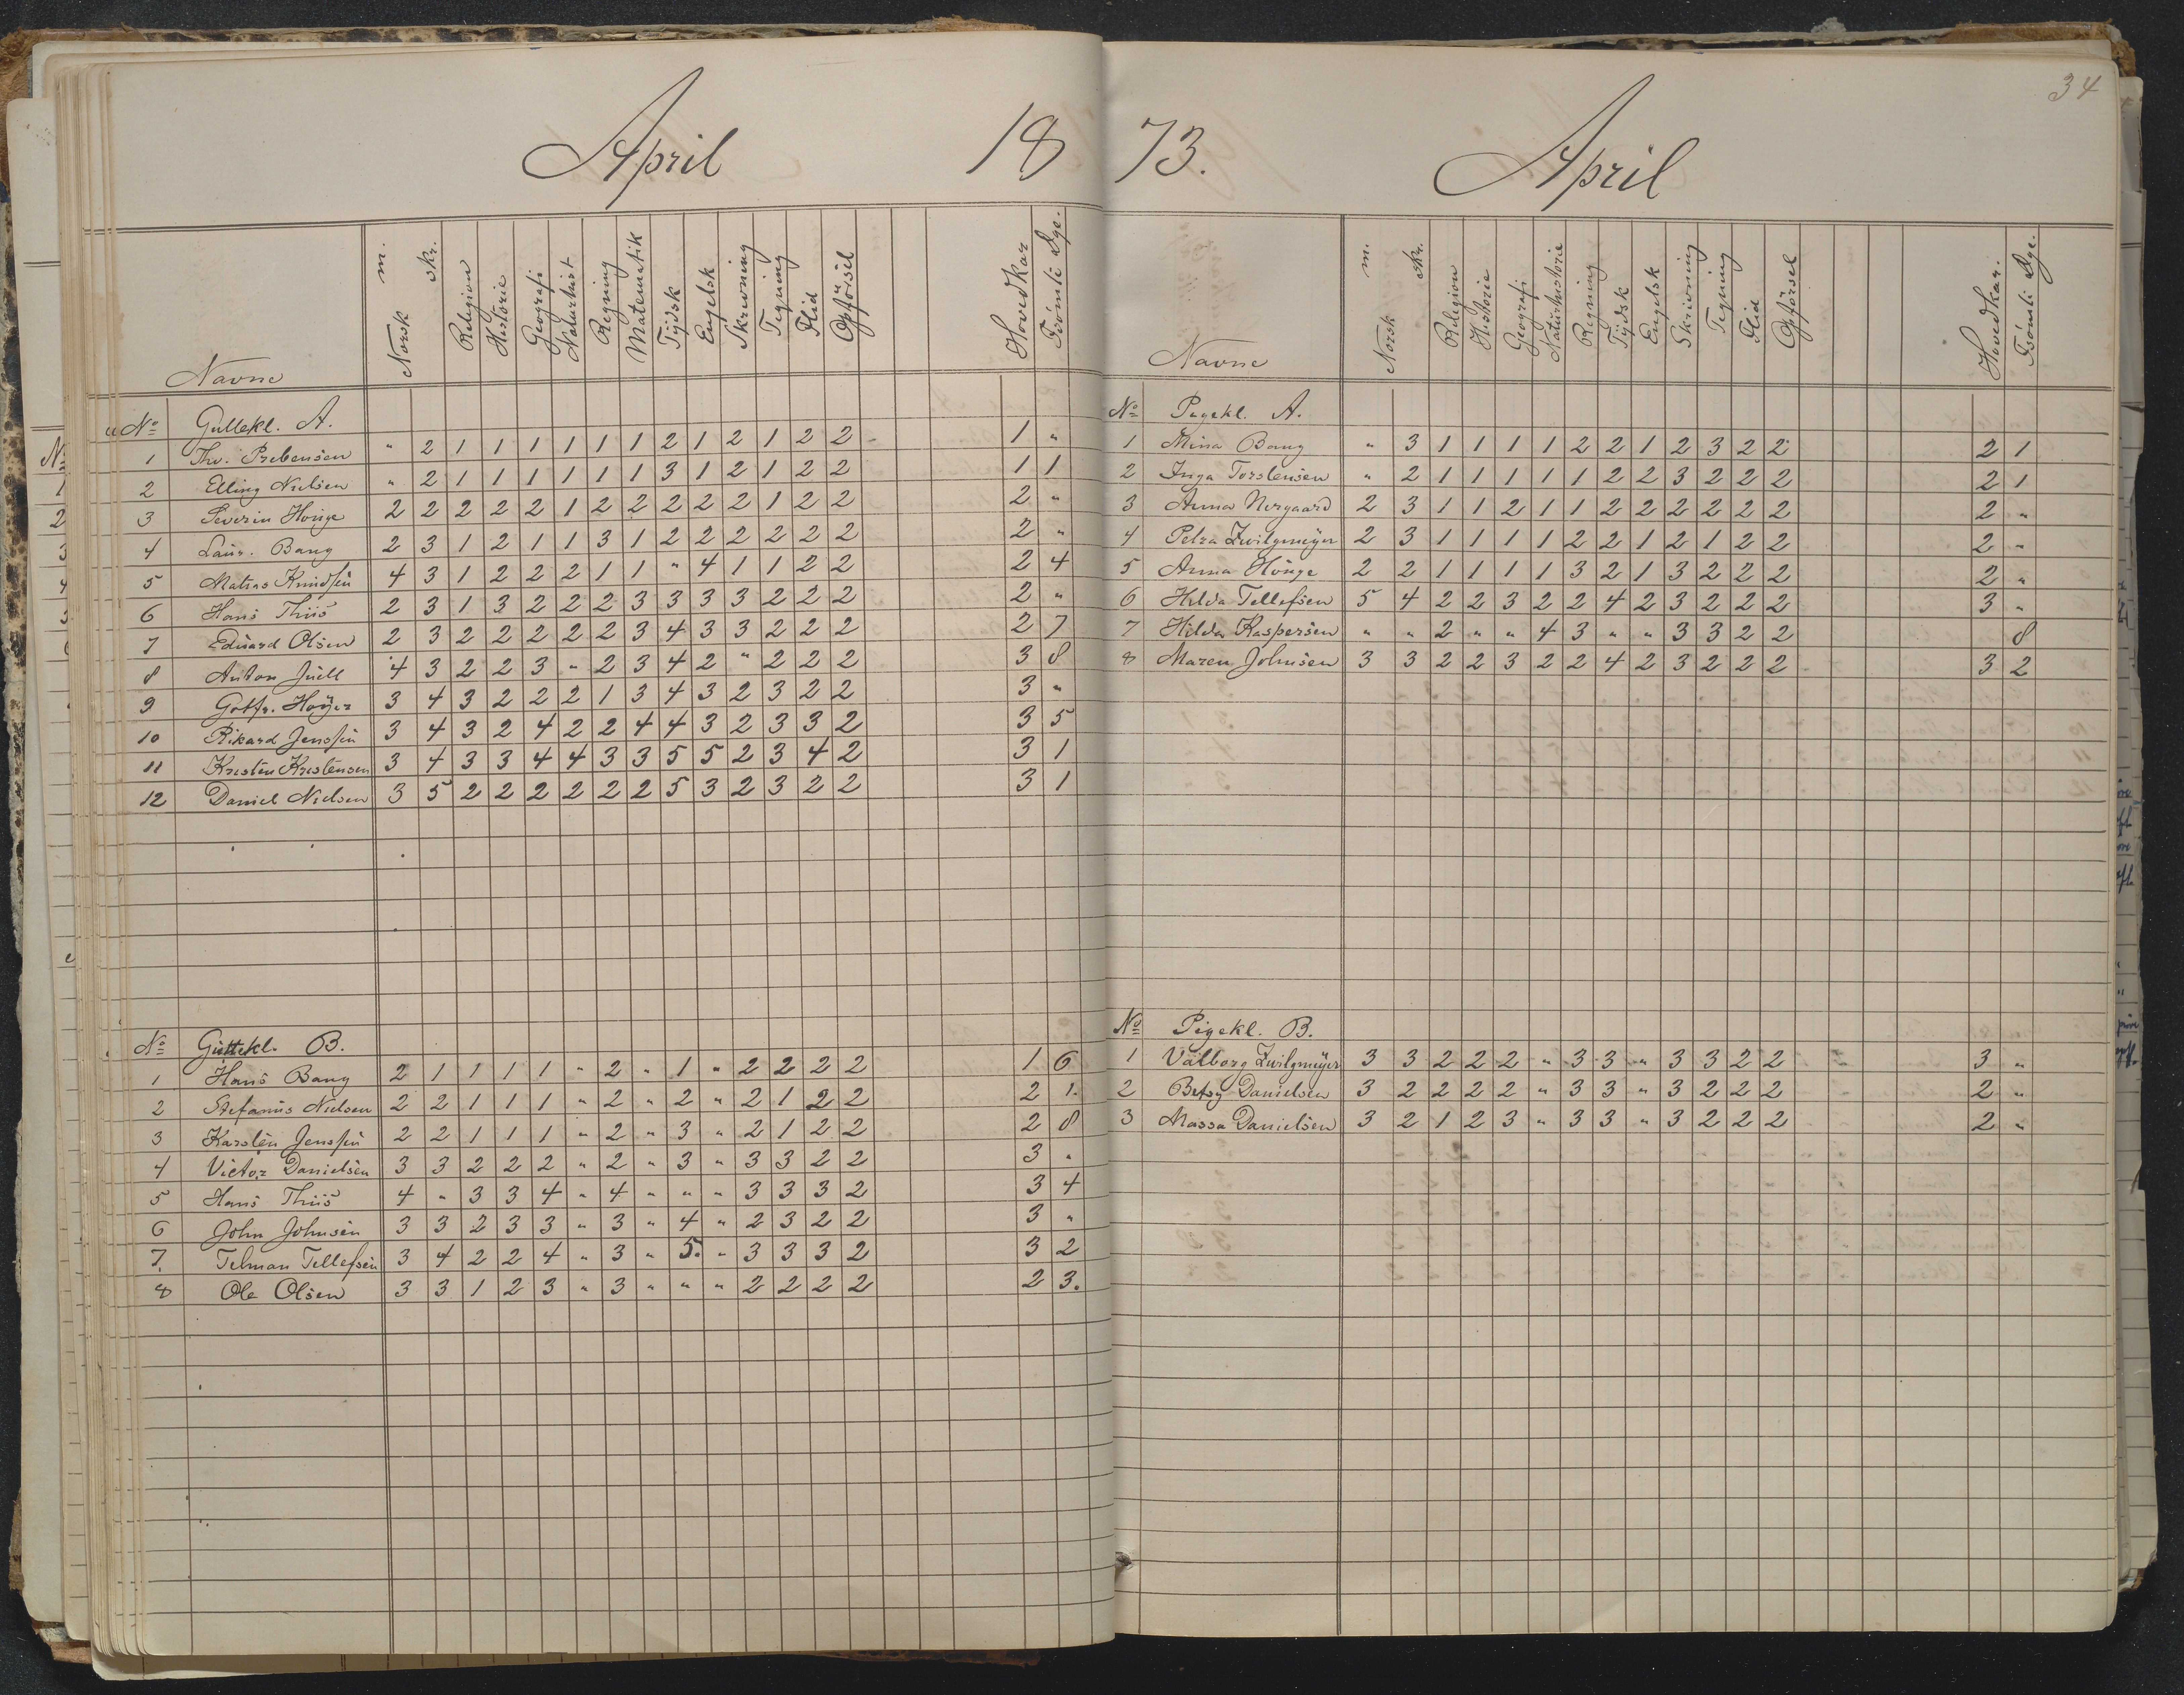 34
April 18
Navne Norsk m. skr. Religion Historie Geografi Naturhist Regning Matematik Tÿdsk Engelsk Skrivning Tegning Flid Opførsel Hovedkar Forsömte Dge.
No Guttekl. A.
1 Thv. Prebensen " 2 1 1 1 1 1 1 2 1 2 1 2 2 1 "
2 Elling Nielsen " 2 1 1 1 1 1 1 3 1 2 1 2 2 1 1
3 Severin Honge 2 2 2 2 2 1 2 2 2 2 2 1 2 2 2 "
4 Laur. Bang 2 3 1 2 1 1 3 1 2 2 2 2 2 2 2 "
5 Matias Knudsen 4 3 1 2 2 2 1 1 " 4 1 1 2 2 2 4
6 Hans Thiis 2 3 1 3 2 2 2 3 3 3 3 2 2 2 2 "
7 Eduard Olsen 2 3 2 2 2 2 2 3 4 3 3 2 2 2 2 7
8 Anton Juell 4 3 2 2 3 " 2 3 4 2 " 2 2 2 3 8
9 Gotfr. Høyer 3 4 3 2 2 2 1 3 4 3 2 3 2 2 3 "
10 Rikard Jenssen 3 4 3 2 4 2 2 4 4 3 2 3 3 2 3 5
11 Kristen Kristensen 3 4 3 3 4 4 3 3 5 5 2 3 4 2 3 1
12 Daniel Nielsen 3 5 2 2 2 2 2 2 5 3 2 3 2 2 3 1
No Guttekl. B.
1 Hans Bang 2 1 1 1 1 " 2 " 1 " 2 2 2 2 1 6
2 Stefanus Nielsen 2 2 1 1 1 " 2 " 2 " 2 1 2 2 2 1.
3 Karsten Jenssen 2 2 1 1 1 " 2 " 3 " 2 1 2 2 2 8
4 Victor Danielsen 3 3 2 2 2 " 2 " 3 " 3 3 2 2 3 "
5 Hans Thiis 4 " 3 3 4 " 4 " " " 3 3 3 2 3 4
6 John Johnsen 3 3 2 3 3 " 3 " 4 " 2 3 2 2 3 "
7. Telman Tellefsen 3 4 2 2 4 " 3 " 5. " 3 3 3 2 3 2
8 Ole Olsen 3 3 1 2 3 " 3 " " " 2 2 2 2 2 3.
73. April
Navne Norsk m. skr. Religion Historie Geografi Naturhistorie Regning Tÿdsk Engelsk Skrivning Tegning Flid Opførsel Hovedkar. Forsömte Dge.
No Pigekl. A.
1 Mina Bang " 3 1 1 1 1 2 2 1 2 3 2 2 2 1
2 Inga Torstensen " 2 1 1 1 1 1 2 2 3 2 2 2 2 1
3 Anna Nergaard 2 3 1 1 2 1 1 2 2 2 2 2 2 2 "
4 Petra Zwilgmeÿer 2 3 1 1 1 1 2 2 1 2 1 2 2 2 "
5 Anna Honge 2 2 1 1 1 1 3 2 1 3 2 2 2 2 "
6 Hilda Tellefsen 5 4 2 2 3 2 2 4 2 3 2 2 2 3 "
7 Hilda Kaspersen " " 2 " " 4 3 " " 3 3 2 2 8
8 Maren Johnsen 3 3 2 2 3 2 2 4 2 3 2 2 2 3 2
No Pigekl. B.
1 Valborg Zwilgmeÿer 3 3 2 2 2 " 3 3 " 3 3 2 2 3 "
2 Betsy Danielsen 3 2 2 2 2 " 3 3 " 3 2 2 2 2 "
3 Massa Danielsen 3 2 1 2 3 " 3 3 " 3 2 2 2 2 "